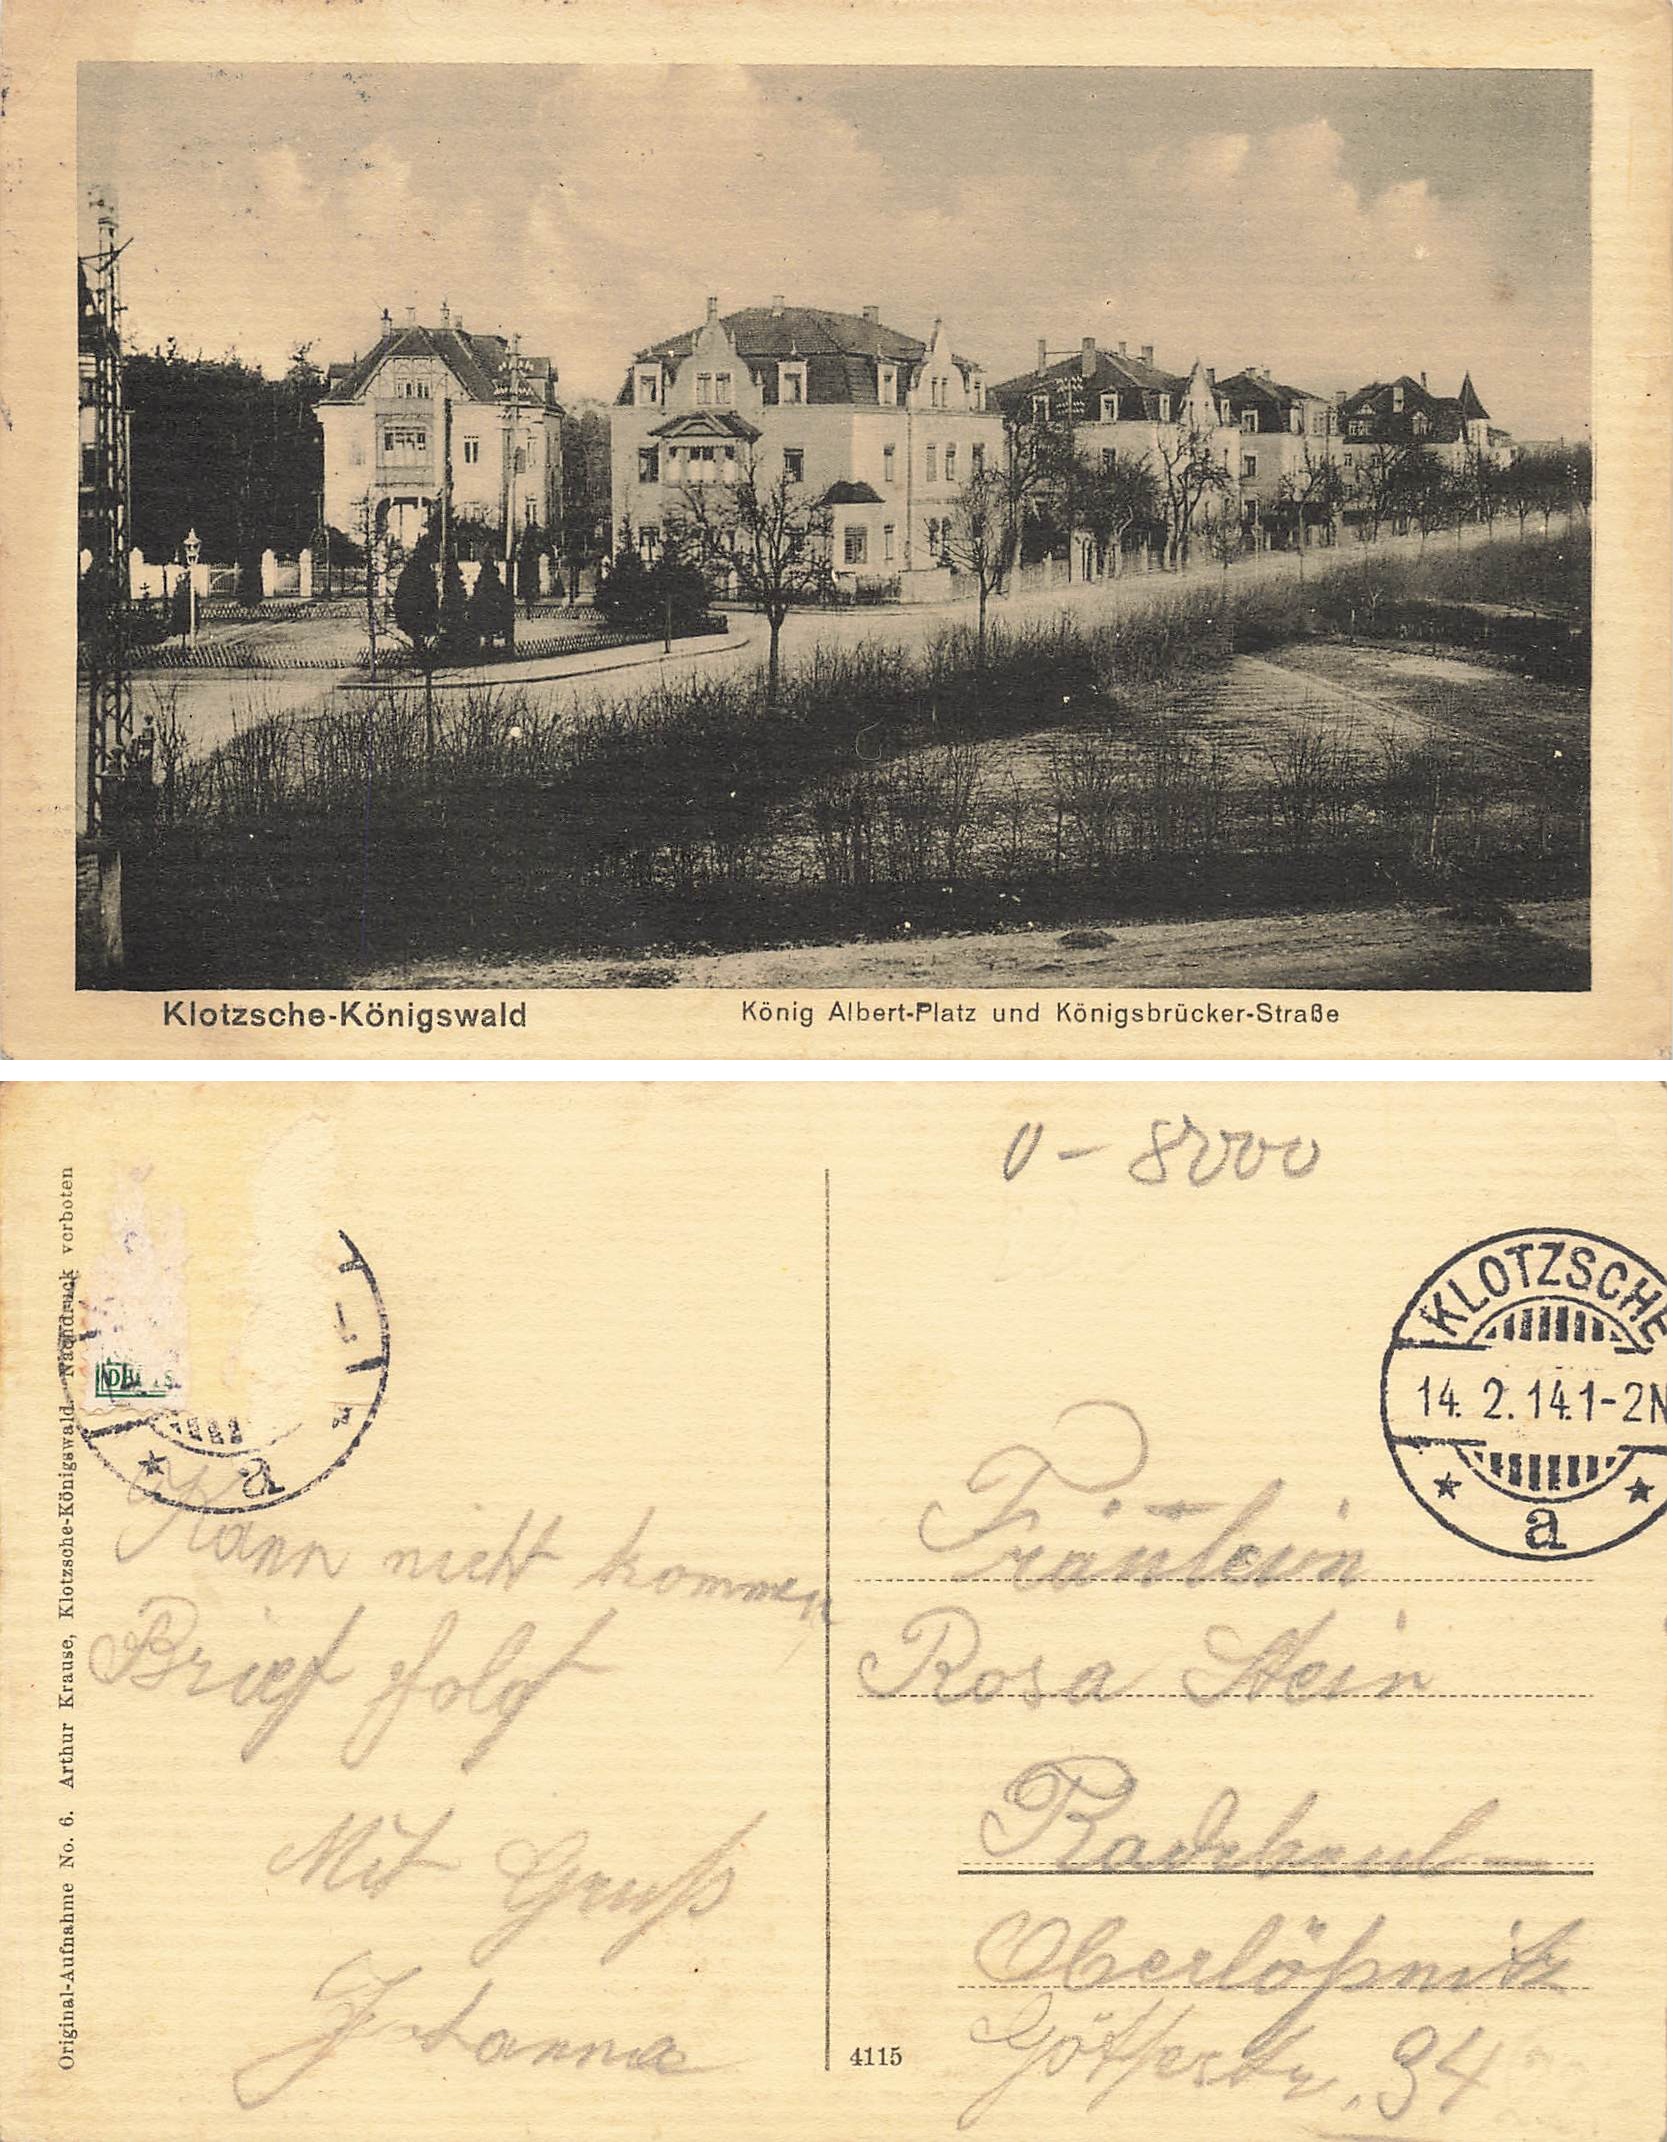 Klotzsche-Königswald
König Albert-Platz und Königsbrücker-Straße
O-8000
KLOTZSCHE
14.2.14.1-2N
* a *
* a
Original-Aufnahme No. 6. Arthur Krause, Klotzsche-Königswald. Nachdruck verboten
Kann nicht kommen
Brief folgt
Mit Gruß
Fräulein
Rosa Stein
Radebeul-
Oberlößnitz
34
4115